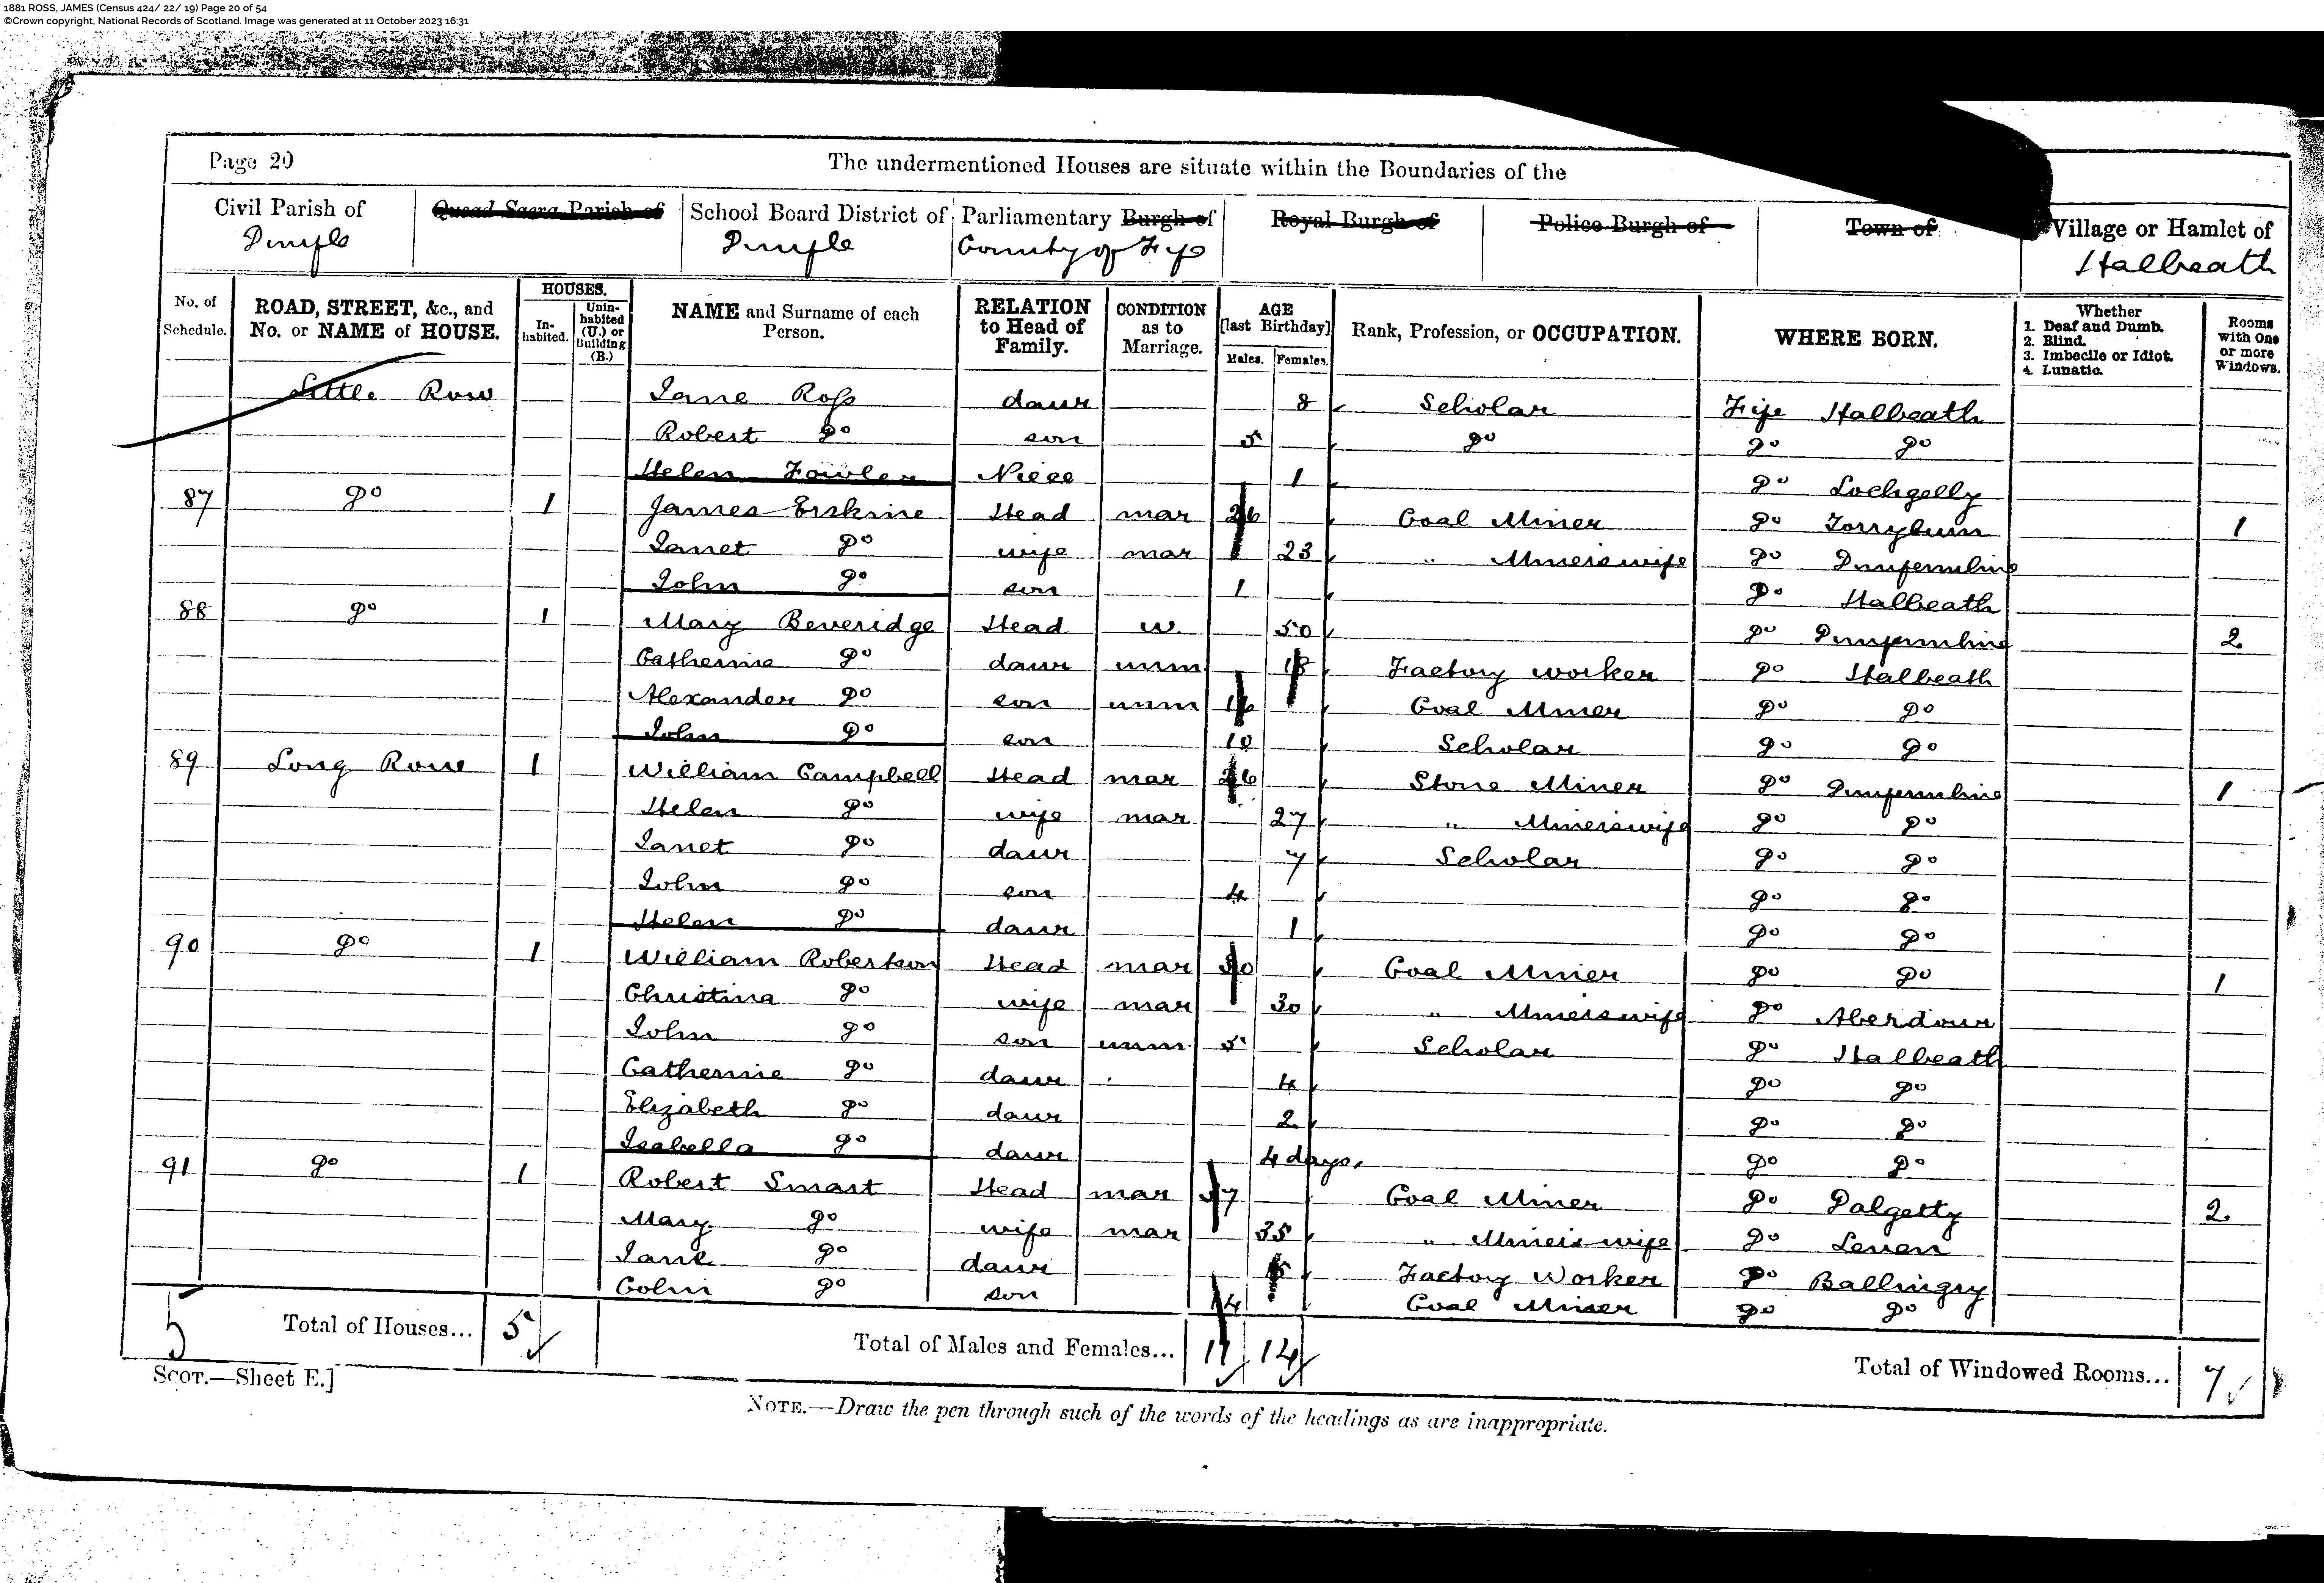 1881 ROSS, JAMES (Census 424/ 22/ 19) Page 20 of 54
©Crown copyright, National Records of Scotland. Image was generated at 11 October 2023 16:31
Page 20 The undermentioned Houses are situate within the Boundaries of the
Civil Parish of Quoad Sacra Parish of School Board District of Parliamentary Burgh of Royal Burgh of Police Burgh of Town of Village or Hamlet of
Dunfle Dunfle County of Fife Halbeath
No. of Schedule. ROAD, STREET, &c., and No. or NAME of HOUSE. HOUSES. Inhabited. Uninhabited (U.) or Building (B.) NAME and Surname of each Person. RELATION to Head of Family. CONDITION as to Marriage. AGE [last Birthday] Males. Females. Rank, Profession, or OCCUPATION. WHERE BORN. Whether 1. Deaf and Dumb. 2. Blind. 3. Imbecile or Idiot. 4. Lunatic. Rooms with One or more Windows.
Little Row Jane Ross daur 8 Scholar Fife Halbeath
Robert Do son 5 Do Do Do
Helen Fowler Niece 1 Do Lochgelly
87 Do 1 James Erskine Head mar 26 Coal Miner Do Torryburn 1
Janet Do wife mar 23 " Miners wife Do Dunfermline
John Do son 1 Do Halbeath
88 Do 1 Mary Beveridge Head W. 50 Do Dunfermline 2
Catherine Do daur unm 18 Factory Worker Do Halbeath
Alexander Do son unm 16 Coal Miner Do Do
John Do son 10 Scholar Do Do
89 Long Row 1 William Campbell Head mar 26 Stone Miner Do Dunfermline 1
Helen Do wife mar 27 " Miners wife Do Do
Janet Do daur 7 Scholar Do Do
John Do son 4 Do Do
Helen Do daur 1 Do Do
90 Do 1 William Robertson Head mar 30 Coal Miner Do Do 1
Christina Do wife mar 30 " Miners wife Do Aberdour
John Do son unm 5 Scholar Do Halbeath
Catherine Do daur 4 Do Do
Elizabeth Do daur 2 Do Do
Isabella Do daur 4 days. Do Do
91 Do 1 Robert Smart Head mar 37 Coal Miner Do Dalgetty 2
Mary Do wife mar 35 " Miners wife Do Leven
Jane Do daur Factory Worker Do Ballingry
Colin Do son 14 Coal Miner Do Do
5 Total of Houses... 5 Total of Males and Females... 11 14 Total of Windowed Rooms... 7
SCOT.—Sheet E.]
NOTE.—Draw the pen through such of the words of the headings as are inappropriate.